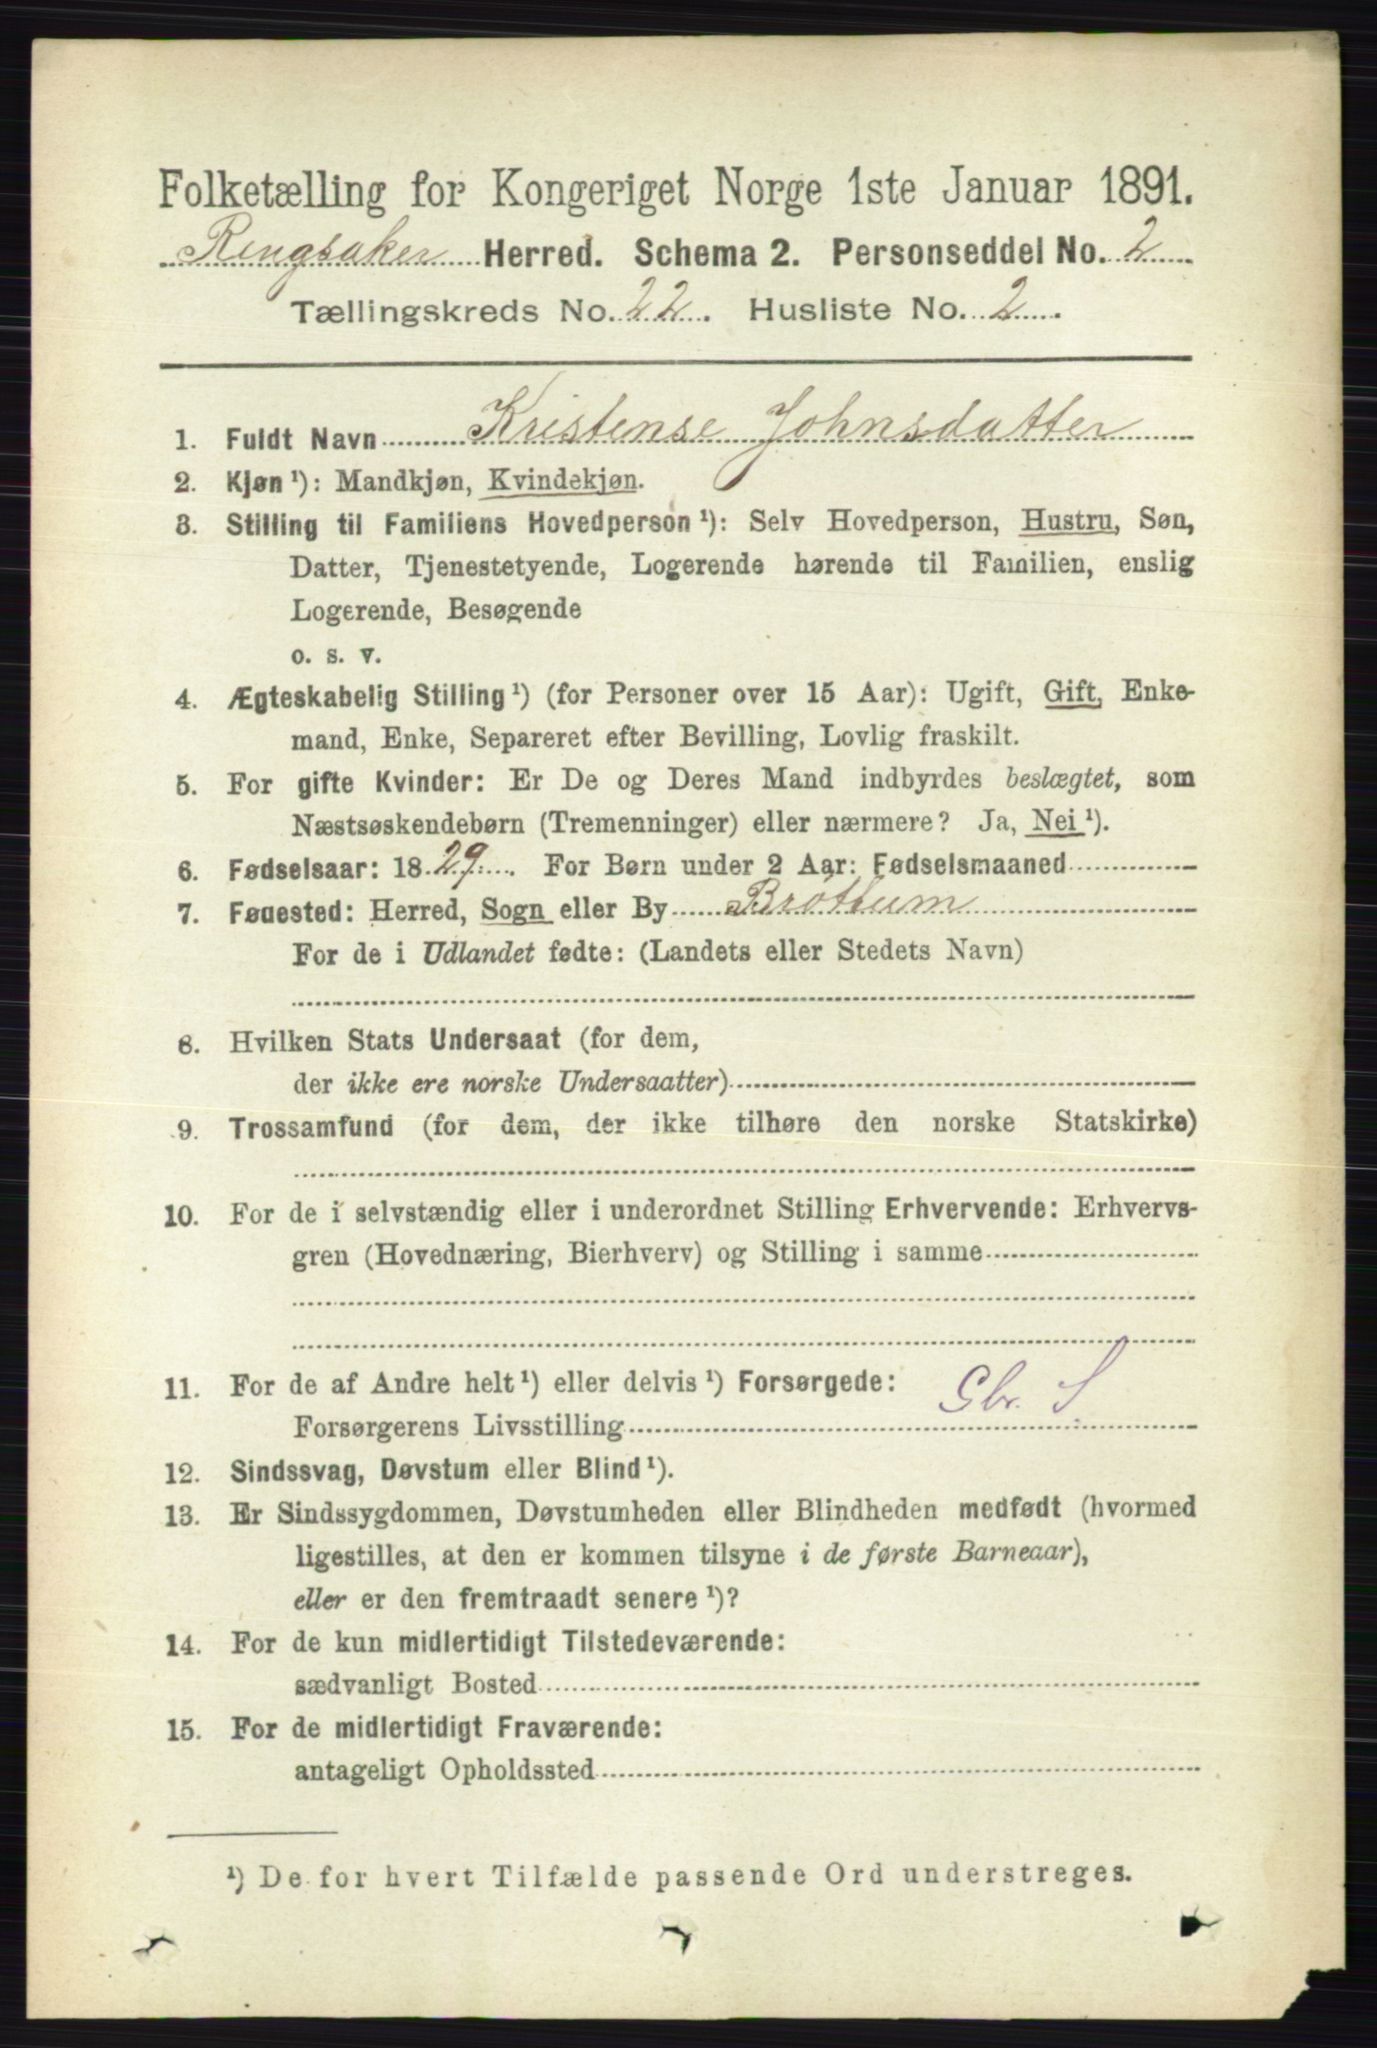 Folketælling for Kongeriget Norge 1ste Januar 1891.
Ringsaker Herred. Schema 2. Personseddel No. 2
Tællingskreds No. 22. Husliste No. 2.
1. Fuldt Navn Kristense Johnsdatter
2. Kjøn ¹): Mandkjøn, Kvindekjøn.
3. Stilling til Familiens Hovedperson ¹): Selv Hovedperson, Hustru, Søn,
Datter, Tjenestetyende, Logerende hørende til Familien, enslig
Logerende, Besøgende
o. s. v.
4. Ægteskabelig Stilling ¹) (for Personer over 15 Aar): Ugift, Gift, Enke-
mand, Enke, Separeret efter Bevilling, Lovlig fraskilt.
5. For gifte Kvinder: Er De og Deres Mand indbyrdes beslægtet, som
Næstsøskendebørn (Tremenninger) eller nærmere? Ja, Nei ¹).
6. Fødselsaar: 1829. For Børn under 2 Aar: Fødselsmaaned
7. Fødested: Herred, Sogn eller By Brøttum
For de i Udlandet fødte: (Landets eller Stedets Navn)
8. Hvilken Stats Undersaat (for dem,
der ikke ere norske Undersaatter)
9. Trossamfund (for dem, der ikke tilhøre den norske Statskirke)
10. For de i selvstændig eller i underordnet Stilling Erhvervende: Erhvervs-
gren (Hovednæring, Bierhverv) og Stilling i samme
11. For de af Andre helt ¹) eller delvis ¹) Forsørgede:
Forsørgerens Livsstilling Gbr. S
12. Sindssvag, Døvstum eller Blind ¹).
13. Er Sindssygdommen, Døvstumheden eller Blindheden medfødt (hvormed
ligestilles, at den er kommen tilsyne i de første Barneaar),
eller er den fremtraadt senere ¹)?
14. For de kun midlertidigt Tilstedeværende:
sædvanligt Bosted
15. For de midlertidigt Fraværende:
antageligt Opholdssted
¹) De for hvert Tilfælde passende Ord understreges.